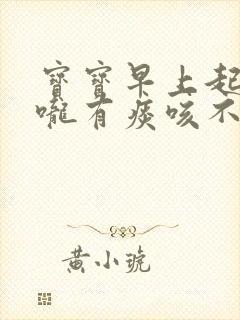 寶寶早上起
嚨有痰咳不
黃小琥